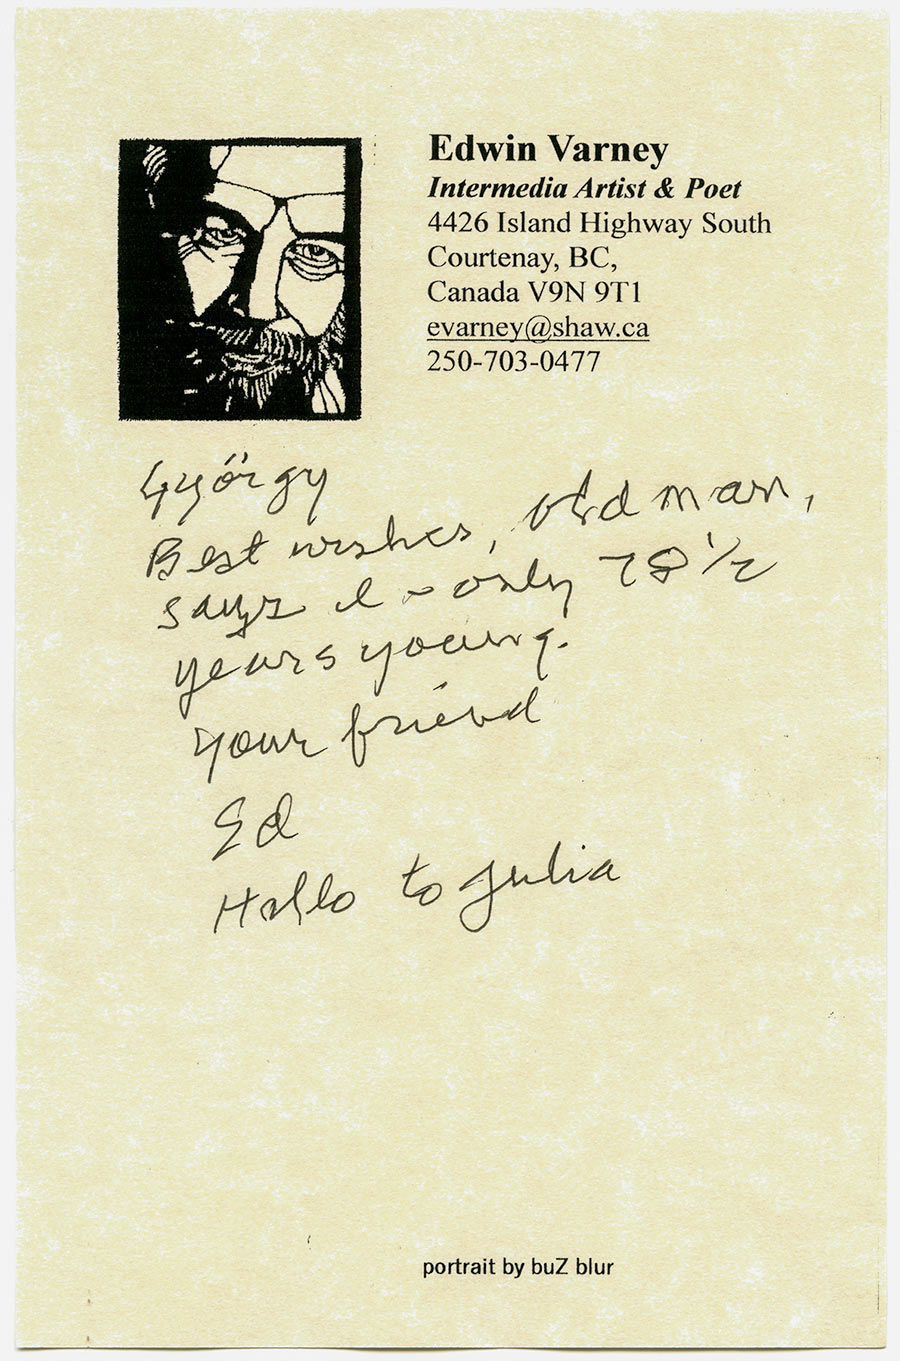 Edwin Varney
Intermedia Artist & Poet
4426 Island Highway South
Courtenay, BC,
Canada V9N 9T1
evarney@shaw.ca
250-703-0477
György
Best wishes, old man,
says I - only 78 1/2
years young.
Your friend
Ed
Hello to Julia
portrait by buZ blur